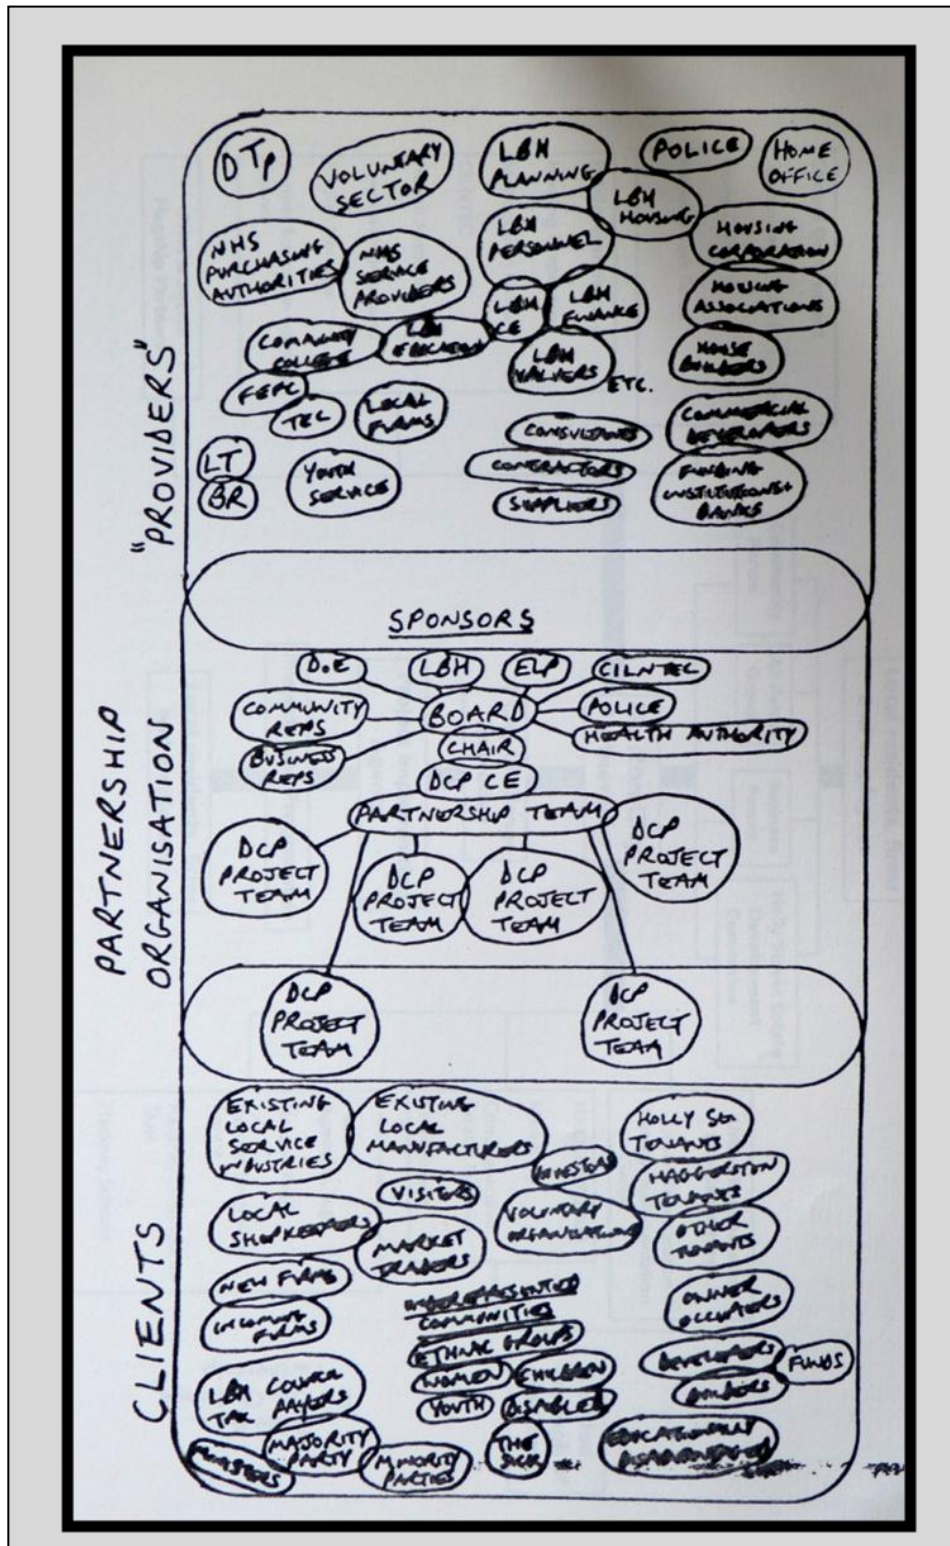 "PROVIDERS"
DTp
VOLUNTARY
SECTOR
LBH
PLANNING
POLICE
HOME
OFFICE
LBH
HOUSING
NHS
PURCHASING
AUTHORITIES
NHS
SERVICE
PROVIDERS
LBH
PERSONNEL
HOUSING
CORPORATION
LBH
CE
LBH
FINANCE
HOUSING
ASSOCIATIONS
COMMUNITY
COLLEGE
LBH
EDUCATION
LBH
VALUERS
ETC.
HOUSE
BUILDERS
FEFC
TEC
LOCAL
FIRMS
CONSULTANTS
COMMERCIAL
DEVELOPERS
LT
BR
YOUTH
SERVICE
CONTRACTORS
SUPPLIERS
FUNDING
INSTITUTIONS+
BANKS
PARTNERSHIP
ORGANISATION
SPONSORS
D.E
LBH
ELP
CILNTEC
COMMUNITY
REPS
BOARD
POLICE
HEALTH AUTHORITY
BUSINESS
REPS
CHAIR
DCP CE
PARTNERSHIP TEAM
DCP
PROJECT
TEAM
DCP
PROJECT
TEAM
DCP
PROJECT
TEAM
DCP
PROJECT
TEAM
DCP
PROJECT
TEAM
DCP
PROJECT
TEAM
CLIENTS
EXISTING
LOCAL
SERVICE
INDUSTRIES
EXISTING
LOCAL
MANUFACTURERS
HOLLY ST.
TENANTS
INVESTORS
HAGGERSTON
TENANTS
VISITERS
LOCAL
SHOPKEEPERS
VOLUNTARY
ORGANISATIONS
OTHER
TENANTS
MARKET
TRADERS
NEW FIRMS
INCOMING
FIRMS
UNDEREPRESENTED
COMMUNITIES
ETHNIC GROUPS
WOMEN
CHILDREN
YOUTH
DISABLED
OWNER
OCCUPIERS
DEVELOPERS
FUNDS
BUILDERS
LBH COUNCIL
TAX PAYERS
MAJORITY
PARTY
MINISTERS
MINORITY
PARTIES
THE
SICK
EDUCATIONALLY
DISADVANTAGED